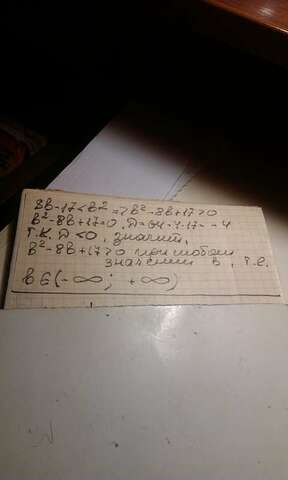 8b-17<b² => b²-8b+17>0
b²-8b+17=0, D=64-4·17=-4
т.к. D<0, значит,
b²-8b+17>0 при любом
значении b, т.е.
b∈(-∞; +∞)